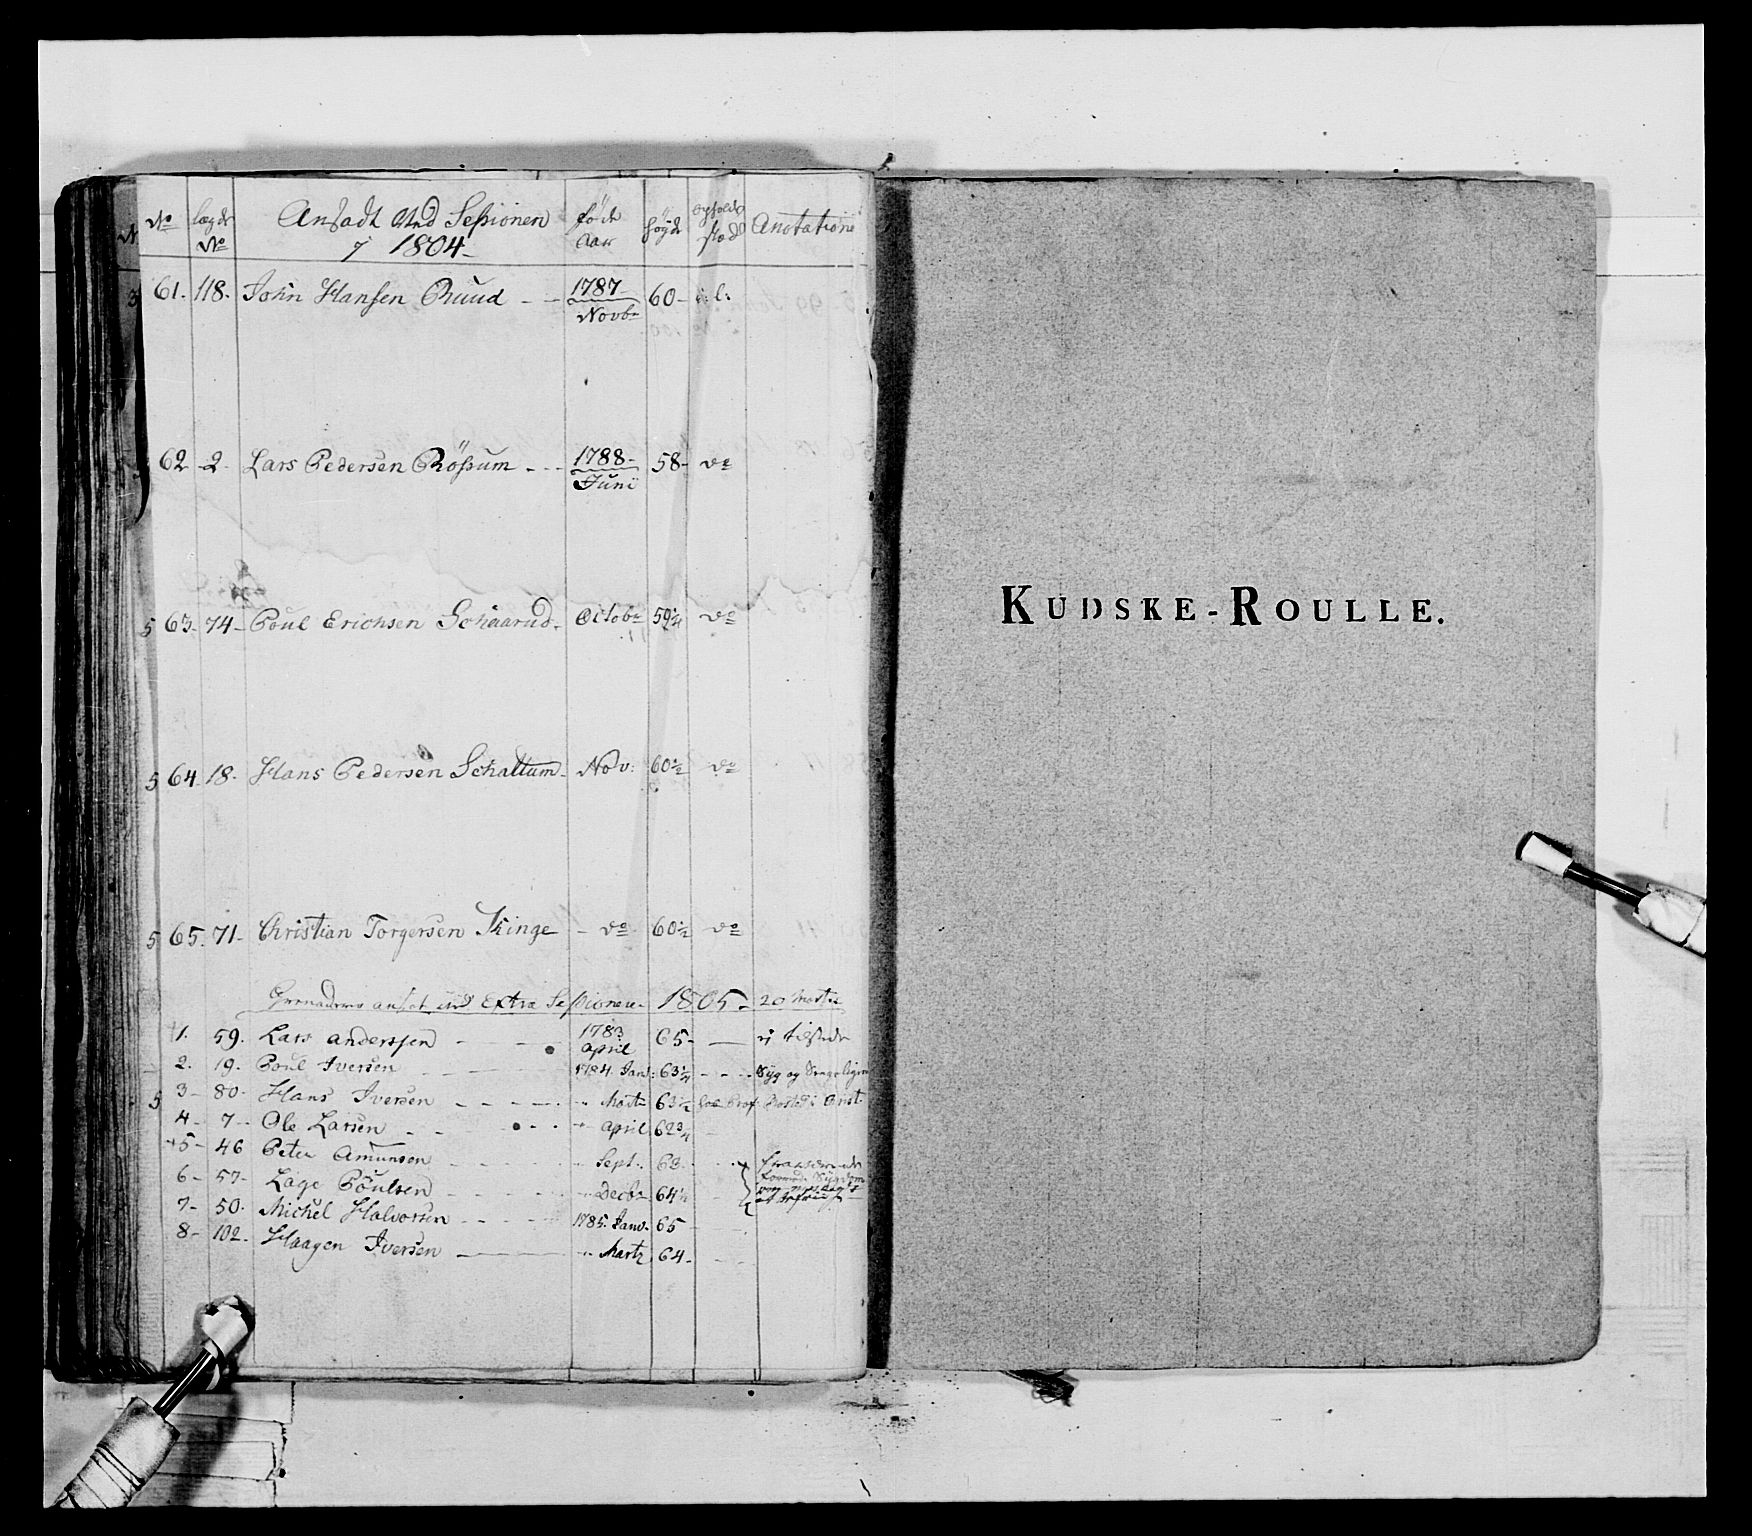 No lægds No Ansadt ved Sessionen 1804 føde Aar høyde opholds stæd Anotation
61. 118. John Hansen Ruud - - 1787 Novbr 60 - i: l:
62 - 2 - Lars Pedersen Røssum - - - 1788 - Junii 58 - do
5 63 - 74 - Poul Erichsen Schaarud - Octobr 59¼ do
5 64 - 18 - Hans Pedersen Schallum - Nov: 60½ do
5 65. 71 - Christian Torgersen Kinge - do 60½ do
ansat ved Extra Sessionen - 1805 - 20 Martii
1. 59. Lars anderssen - - - 1783 april 65 - — ej tilstede
2. 19. Poul Iversen - - - - 1784. Jan: 63¼ - - - Syg og
5 3 - 80. Hans Iversen - - - - - " Martz 63½
4 - 7 - Ole Larsen - - - - " april 62¾
5 - 46 Peter Amunsen - - - - " Sept. 63.
6 - 57 - Lage Poulsen - - - - " Decbr 64½
7 - 50. Michel Halvorsen - - - - 1785. Janv. 65
8 - 102. Haagen Iversen - - - - " Martz 64 -
KUDSKE-ROULLE.